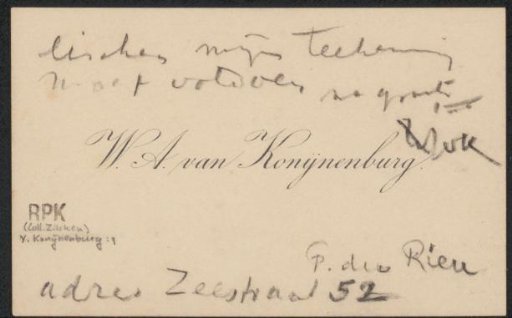 mijn Teekening
voldoen na groete
W. A. van Konijnenburg.
WvK
RPK
(Coll. Zilcken)
V. Konijnenburg: 1
P. du Rieu
adres Zeestraat 52